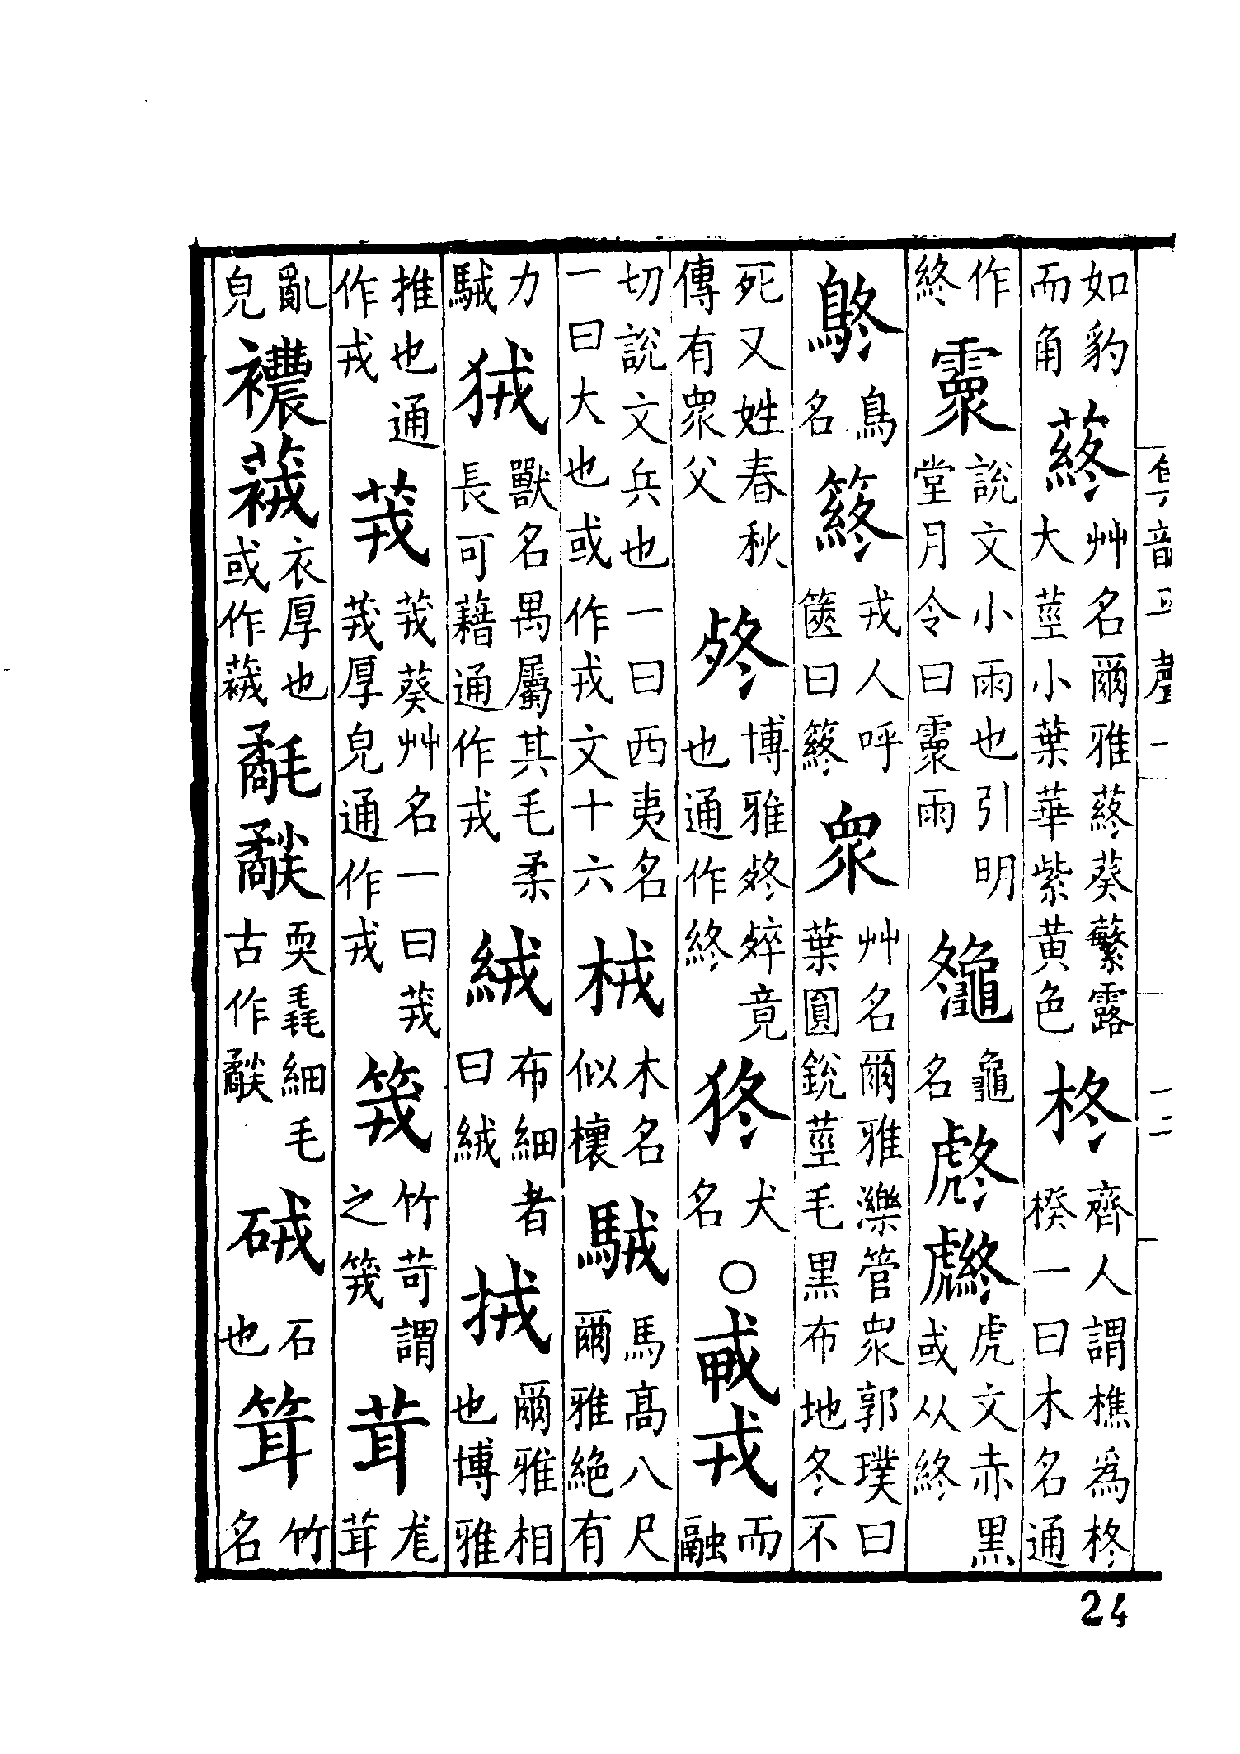 集韻平聲一　十二
如豹而角 蔠 艸名爾雅蔠葵蘩露大莖小葉華紫黃色 柊 齊人謂樵爲柊楑一曰木名通
作終 霥 說文小雨也引明堂月令曰霥雨 龜名 虎文赤黑或从終
鴤 鳥名 䈺 戎人呼篋曰䈺 眾 艸名爾雅濼管眾郭璞曰葉圓銳莖毛黑布地冬不
死又姓春秋傳有眾父 博雅 竟也通作終 犬名 ○ 戎 而融
切說文兵也一曰西夷名一曰大也或作戎文十六 木名似欀 駥 馬高八尺爾雅絶有
力駥 狨 獸名禺屬其毛柔長可藉通作戎 絨 布細者曰絨 㧡 爾雅相也博雅
推也通作戎 茙 茙葵艸名一曰茙茙厚皃通作戎 竹苛謂之 茸 尨茸
亂皃 襛 衣厚也或作 耎毳細毛古作 石也 竹名
24